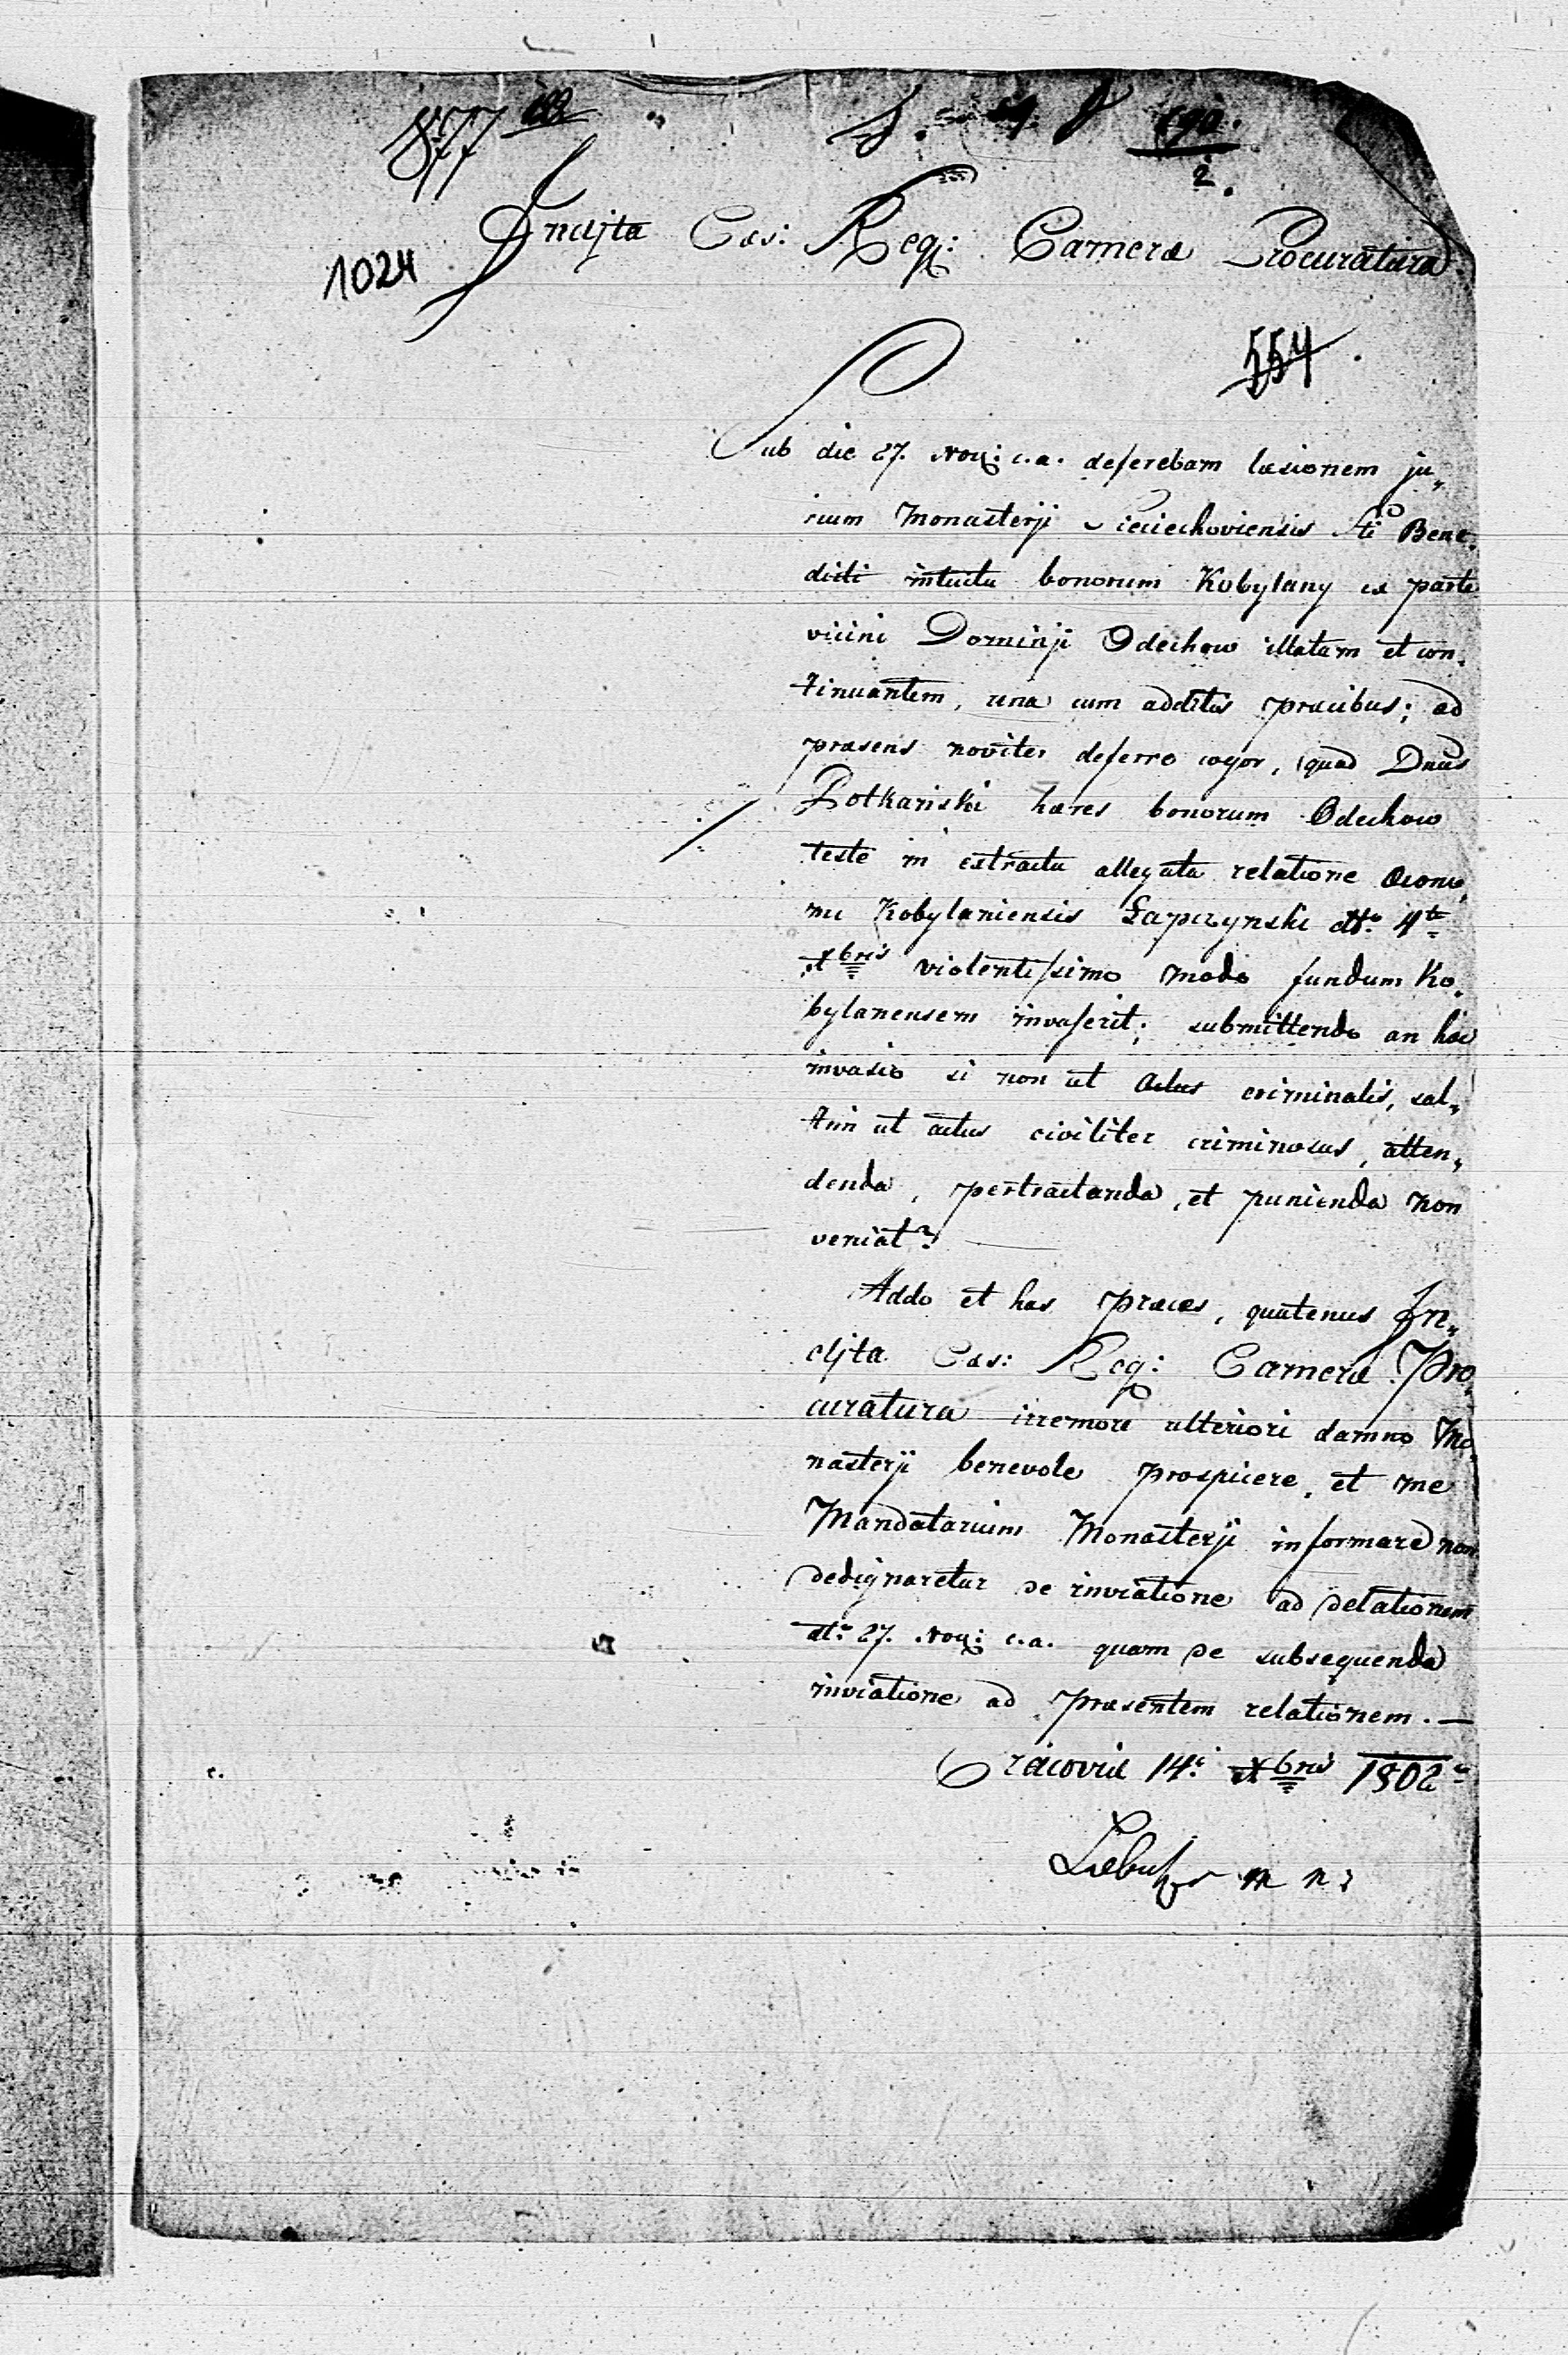 877
1024
Inclyta Cæs: Reg: Cameræ Procuratura
554
Sub die 27. Nov: c.a. deferebam læsionem ju„
rium Monasterji Sieciechoviensis Sti Bene„
dicti intuitu bonorum Kobylany ex parte
vicini Dominji Odechow illatam et con„
tinuantem, una cum additis præcibus; ad
præsens noviter deferre cogor, quod Dnus
Potkański hæres bonorum Odechow
teste in extractu allegata relatione Oecono„
mi Kobylaniensis Łapczynski dtto 4ta
Xbris violentissimo modo fundum Ko„
bylanensem invaserit; submittendo an hæc
invasio si non ut Actus criminalis, sal„
tim ut actus civiliter criminosus, atten„
denda, pertractanda, et punienda non
veniat?
Addo et has præces, quatenus In„
clyta Cæs: Reg: Cameræ Pro„
curatura irremore ulteriori damno Mo„
nasterji benevole prospicere, et me
Mandatarium Monasterji informare non
dedignaretur de inviatione ad delationem
dt: 27. Nov: c.a. quam de subsequenda
inviatione ad præsentem relationem. —
Cracoviæ 14. Xbris 1802